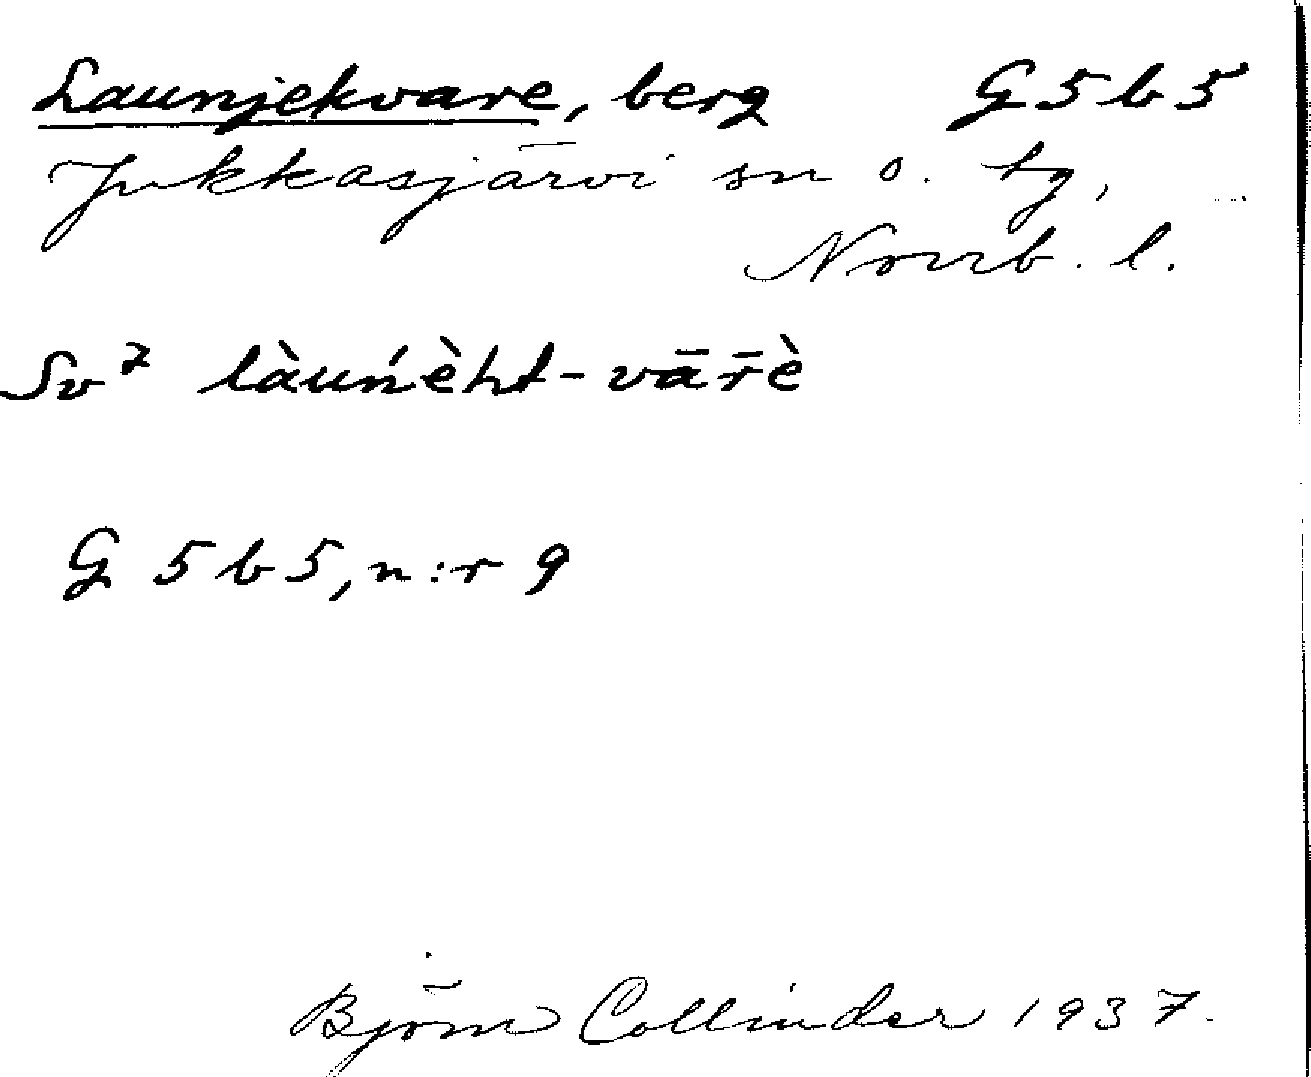 Launjekvare, berg G5b5
Jukkasjärvi sn o. tg,
Norrb. l.
Sv² làuńèht-vār̄è
G 5b5, n:r 9
Björn Collinder 1937.